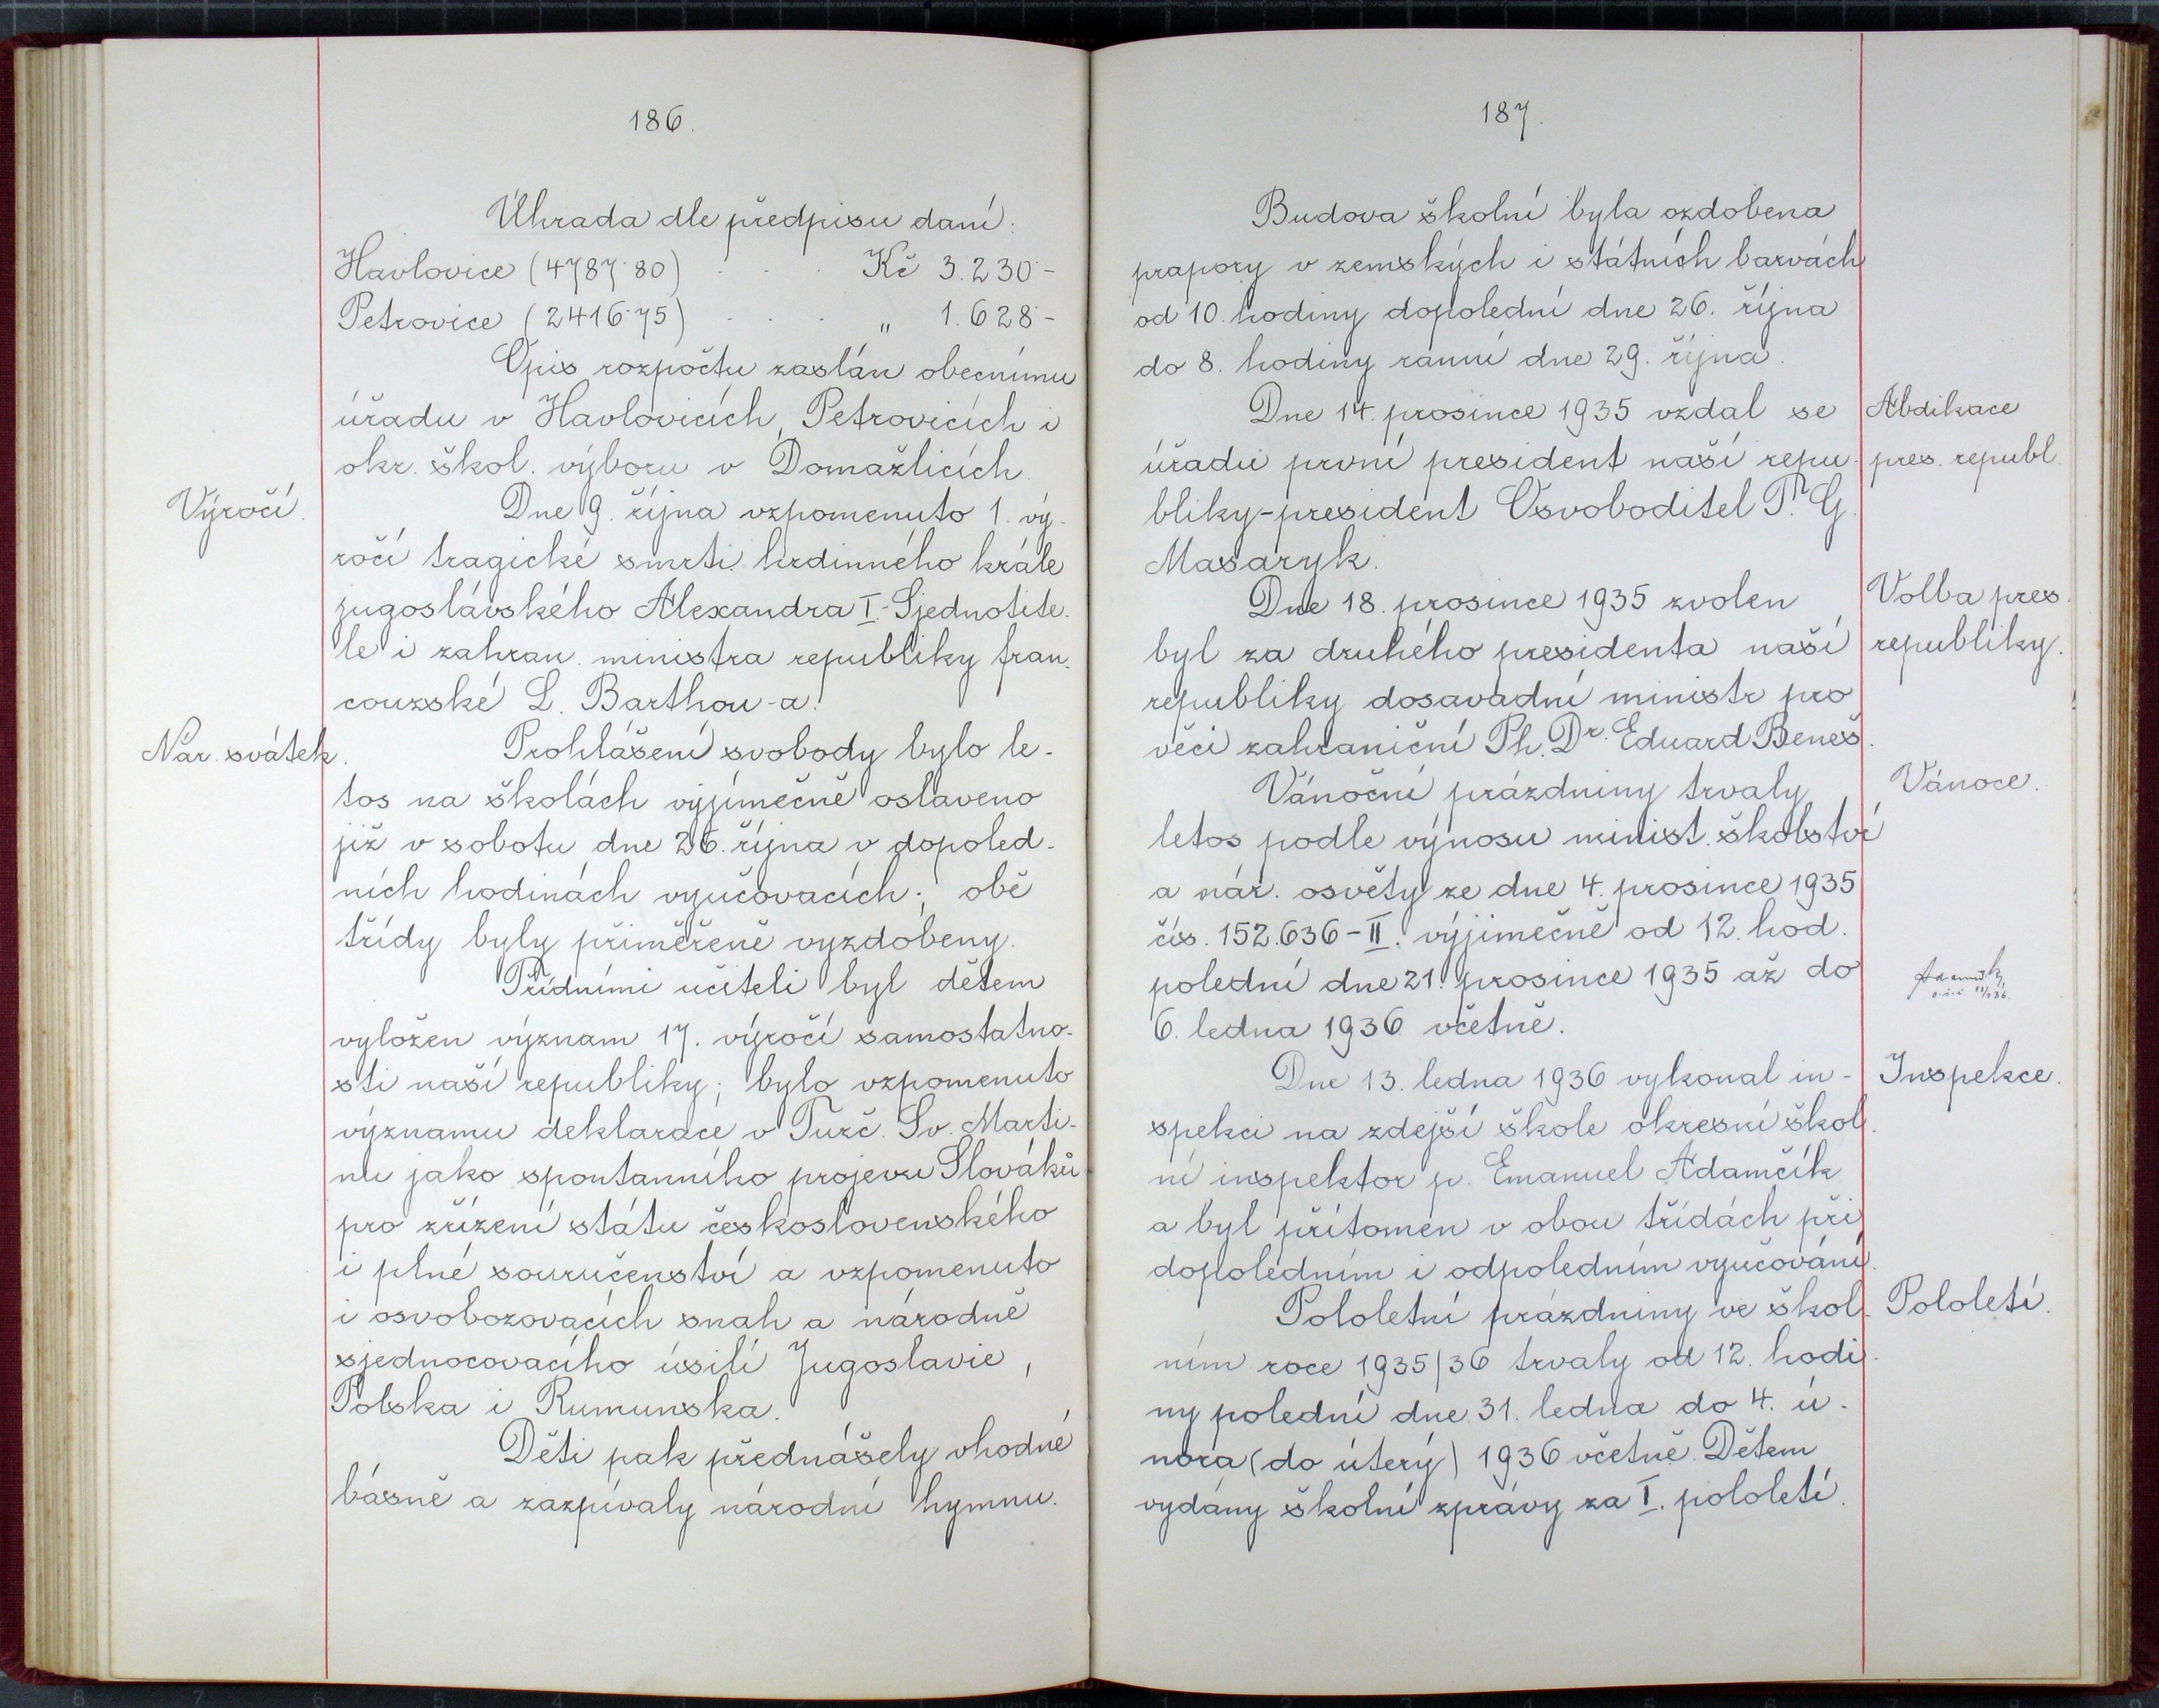 186.
Úhrada dle předpisu daní:
Havlovice (4787·80) . . . Kč 3.230·-
Petrovice (2416·75) . . . „ 1.628·-
Opis rozpočtu zaslán obecnímu
úřadu v Havlovicích, Petrovicích i
okr. škol. výboru v Domažlicích.
Výročí.
Dne 9. října vzpomenuto 1. vý-
ročí tragické smrti hrdinného krále
jugoslávského Alexandra I.-Sjednotite-
le i zahran. ministra republiky fran-
couzské L. Barthou-a.
Nár. svátek.
Prohlášení svobody bylo le-
tos na školách vyjímečně oslaveno
již v sobotu dne 26. října v dopoled-
ních hodinách vyučovacích; obě
třídy byly přiměřeně vyzdobeny.
Třídními učiteli byl dětem
vyložen význam 17. výročí samostatno-
sti naší republiky; bylo vzpomenuto
významu deklarace v Turč. Sv. Marti-
nu jako spontanního projevu Slováků
pro zřízení státu československého
i plné souručenství a vzpomenuto
i osvobozovacích snah a národně
sjednocovacího úsilí Jugoslavie,
Polska i Rumunska.
Děti pak přednášely vhodné
básně a zazpívaly národní hymnu.
187.
Budova školní byla ozdobena
prapory v zemských i státních barvách
od 10. hodiny dopolední dne 26. října
do 8. hodiny ranní dne 29. října.
Dne 14. prosince 1935 vzdal se
Abdikace
úřadu první president naší repu-
pres. republ.
bliky-president Osvoboditel T. G.
Masaryk.
Dne 18. prosince 1935 zvolen
Volba pres.
byl za druhého presidenta naší
republiky.
republiky dosavadní ministr pro
věci zahraniční Ph. Dr. Eduard Beneš.
Vánoční prázdniny trvaly
Vánoce.
letos podle výnosu minist. školství
a nár. osvěty ze dne 4. prosince 1935
čís. 152.636-II. výjimečně od 12. hod.
polední dne 21. prosince 1935 až do
6. ledna 1936 včetně.
Dne 13. ledna 1936 vykonal in-
Inspekce.
spekci na zdejší škole okresní škol-
ní inspektor p. Emanuel Adamčík
a byl přítomen v obou třídách při
dopoledním i odpoledním vyučování.
Pololetní prázdniny ve škol-
Pololetí.
ním roce 1935/36 trvaly od 12. hodi-
ny polední dne 31. ledna do 4. ú-
nora (do úterý) 1936 včetně. Dětem
vydány školní zprávy za I. pololetí.